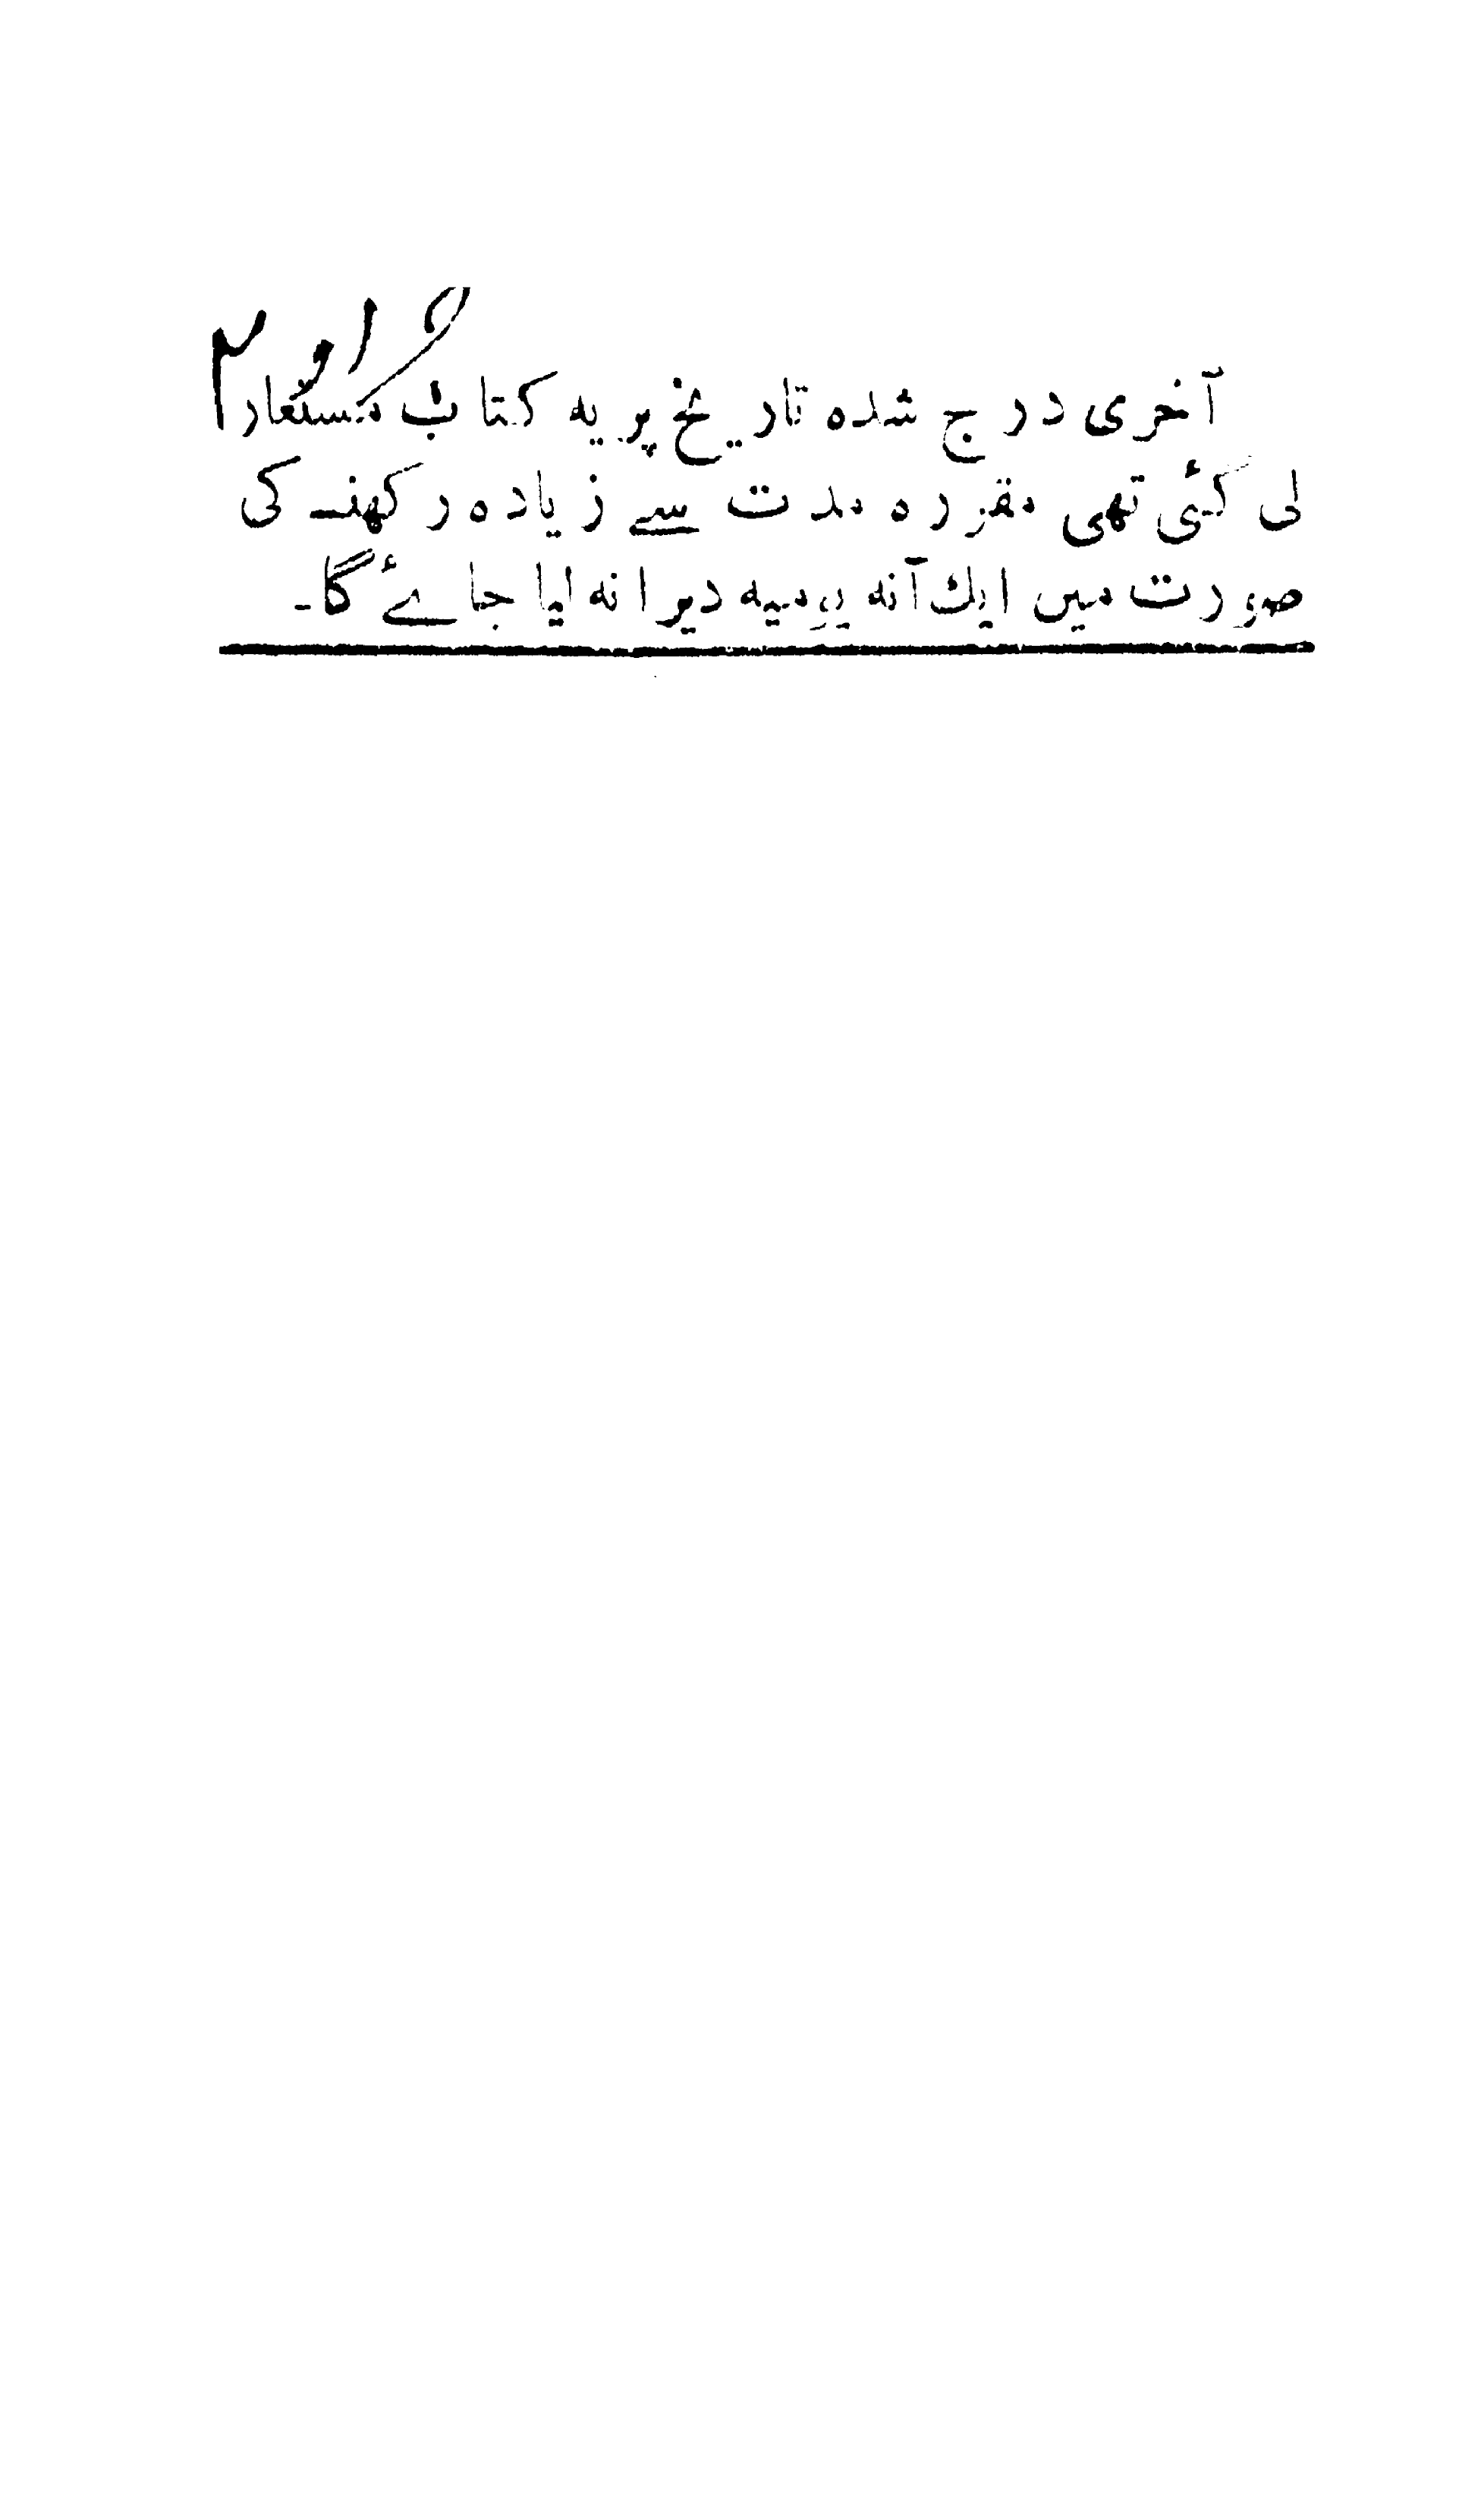 آخری درج شدہ تاریخ پر یہ کتاب مستعار
لی گئی تھی مقررہ مدت سے زیادہ رکھنے کی
صورت میں ایک آنہ یومیہ دیرانہ لیا جائے گا۔